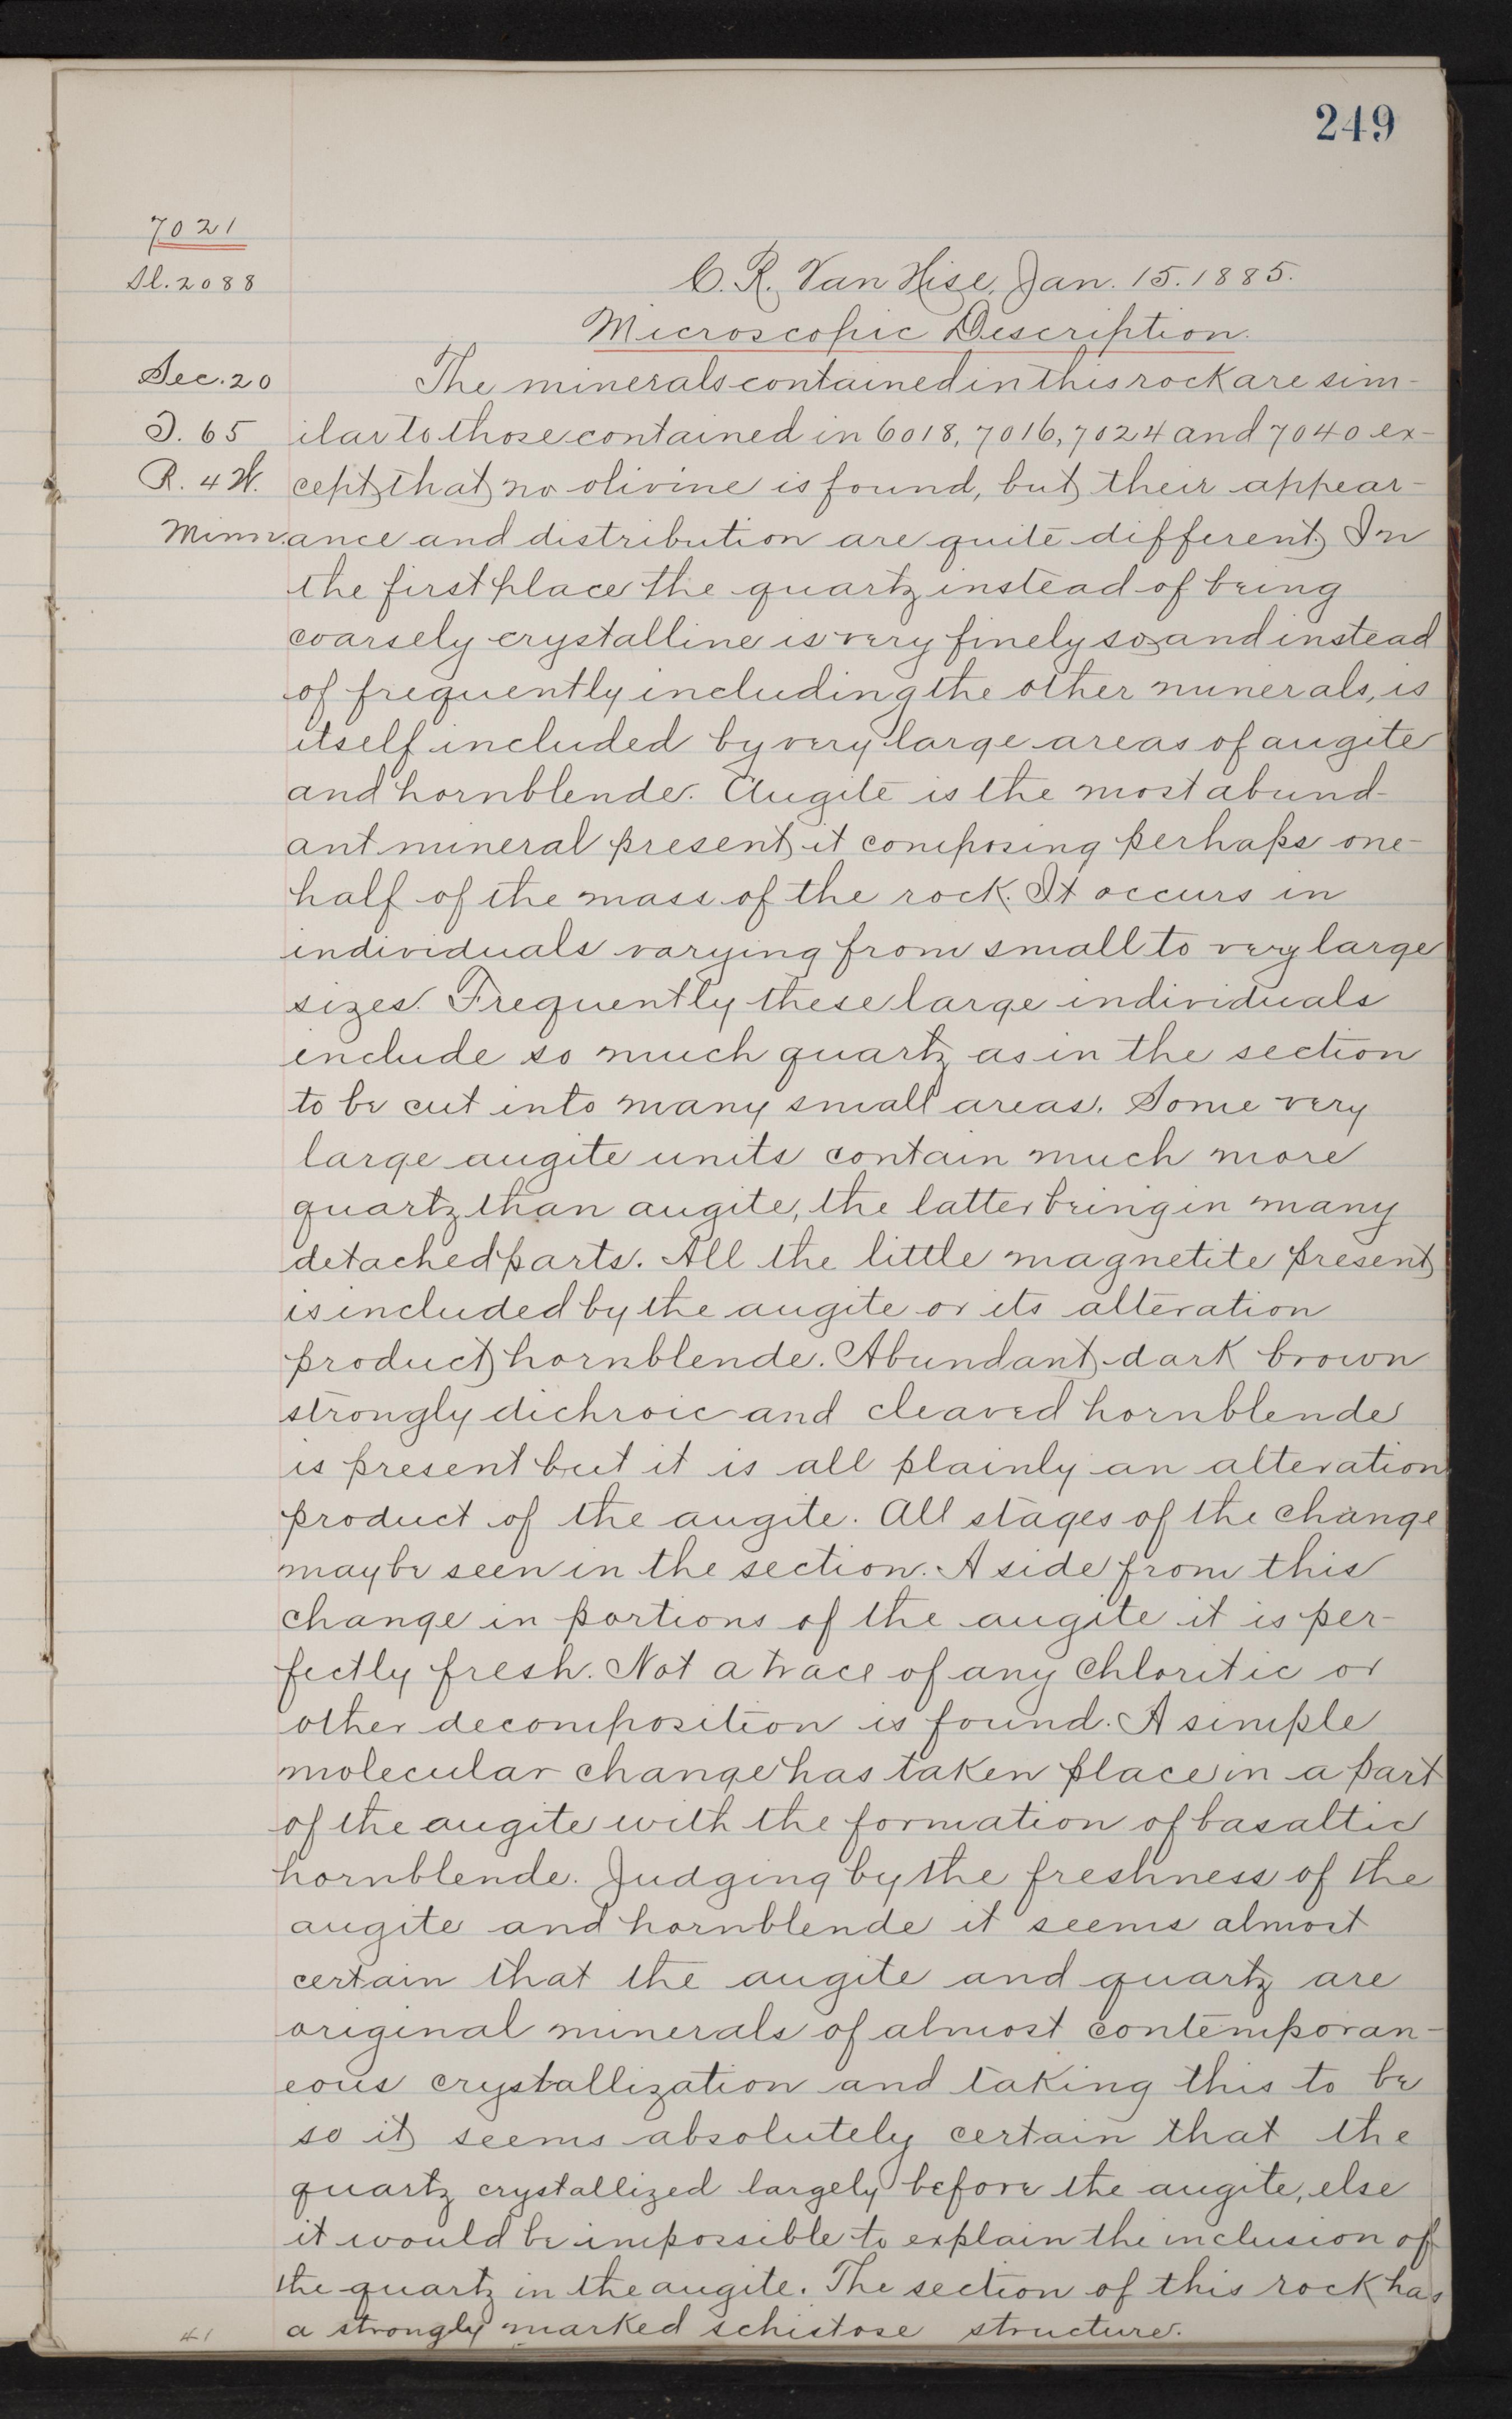 249
7021
Sl. 2088
C. R. Van Hise, Jan. 15. 1885.
Microscopic Description.
Sec. 20
The minerals contained in this rock are sim-
T. 65
ilar to those contained in 6018, 7016, 7024 and 7040 ex-
R. 4 W.
cept that no olivine is found, but their appear-
Minn.
ance and distribution are quite different. In
the first place the quartz instead of being
coarsely crystalline is very finely so, and instead
of frequently including the other minerals, is
itself included by very large areas of augite
and hornblende. Augite is the most abund-
ant mineral present, it composing perhaps one-
half of the mass of the rock. It occurs in
individuals varying from small to very large
sizes. Frequently these large individuals
include so much quartz as in the section
to be cut into many small areas. Some very
large augite units contain much more
quartz than augite, the latter being in many
detached parts. All the little magnetite present
is included by the augite or its alteration
product, hornblende. Abundant dark brown
strongly dichroic and cleaved hornblende
is present but it is all plainly an alteration
product of the augite. All stages of the change
may be seen in the section. Aside from this
change in portions of the augite it is per-
fectly fresh. Not a trace of any chloritic or
other decomposition is found. A simple
molecular change has taken place in a part
of the augite with the formation of basaltic
hornblende. Judging by the freshness of the
augite and hornblende it seems almost
certain that the augite and quartz are
original minerals of almost contemporan-
eous crystallization and taking this to be
so it seems absolutely certain that the
quartz crystallized largely before the augite, else
it would be impossible to explain the inclusion of
the quartz in the augite. The section of this rock has
a strongly marked schistose structure.
41